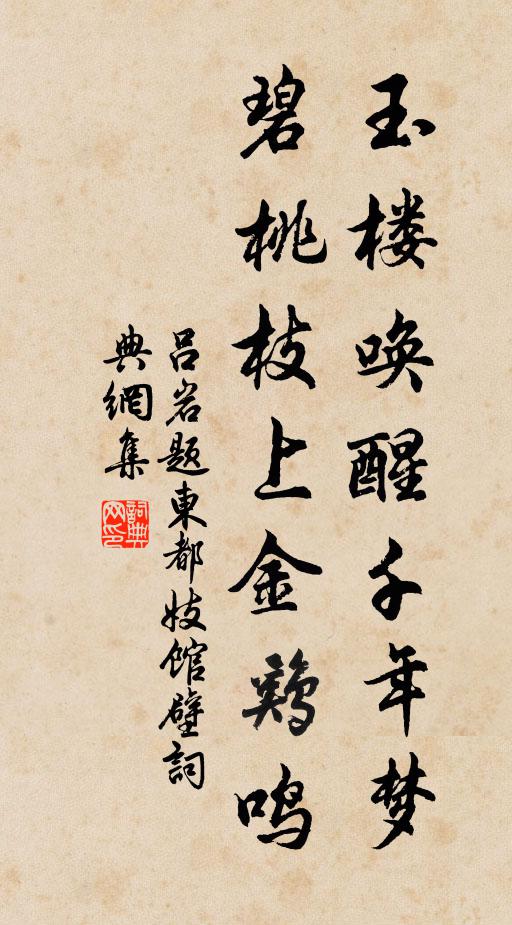 玉楼唤醒千年梦
碧桃枝上金鶏鸣
吕岩题東都妓館壁詞
典網集
詞典
网印